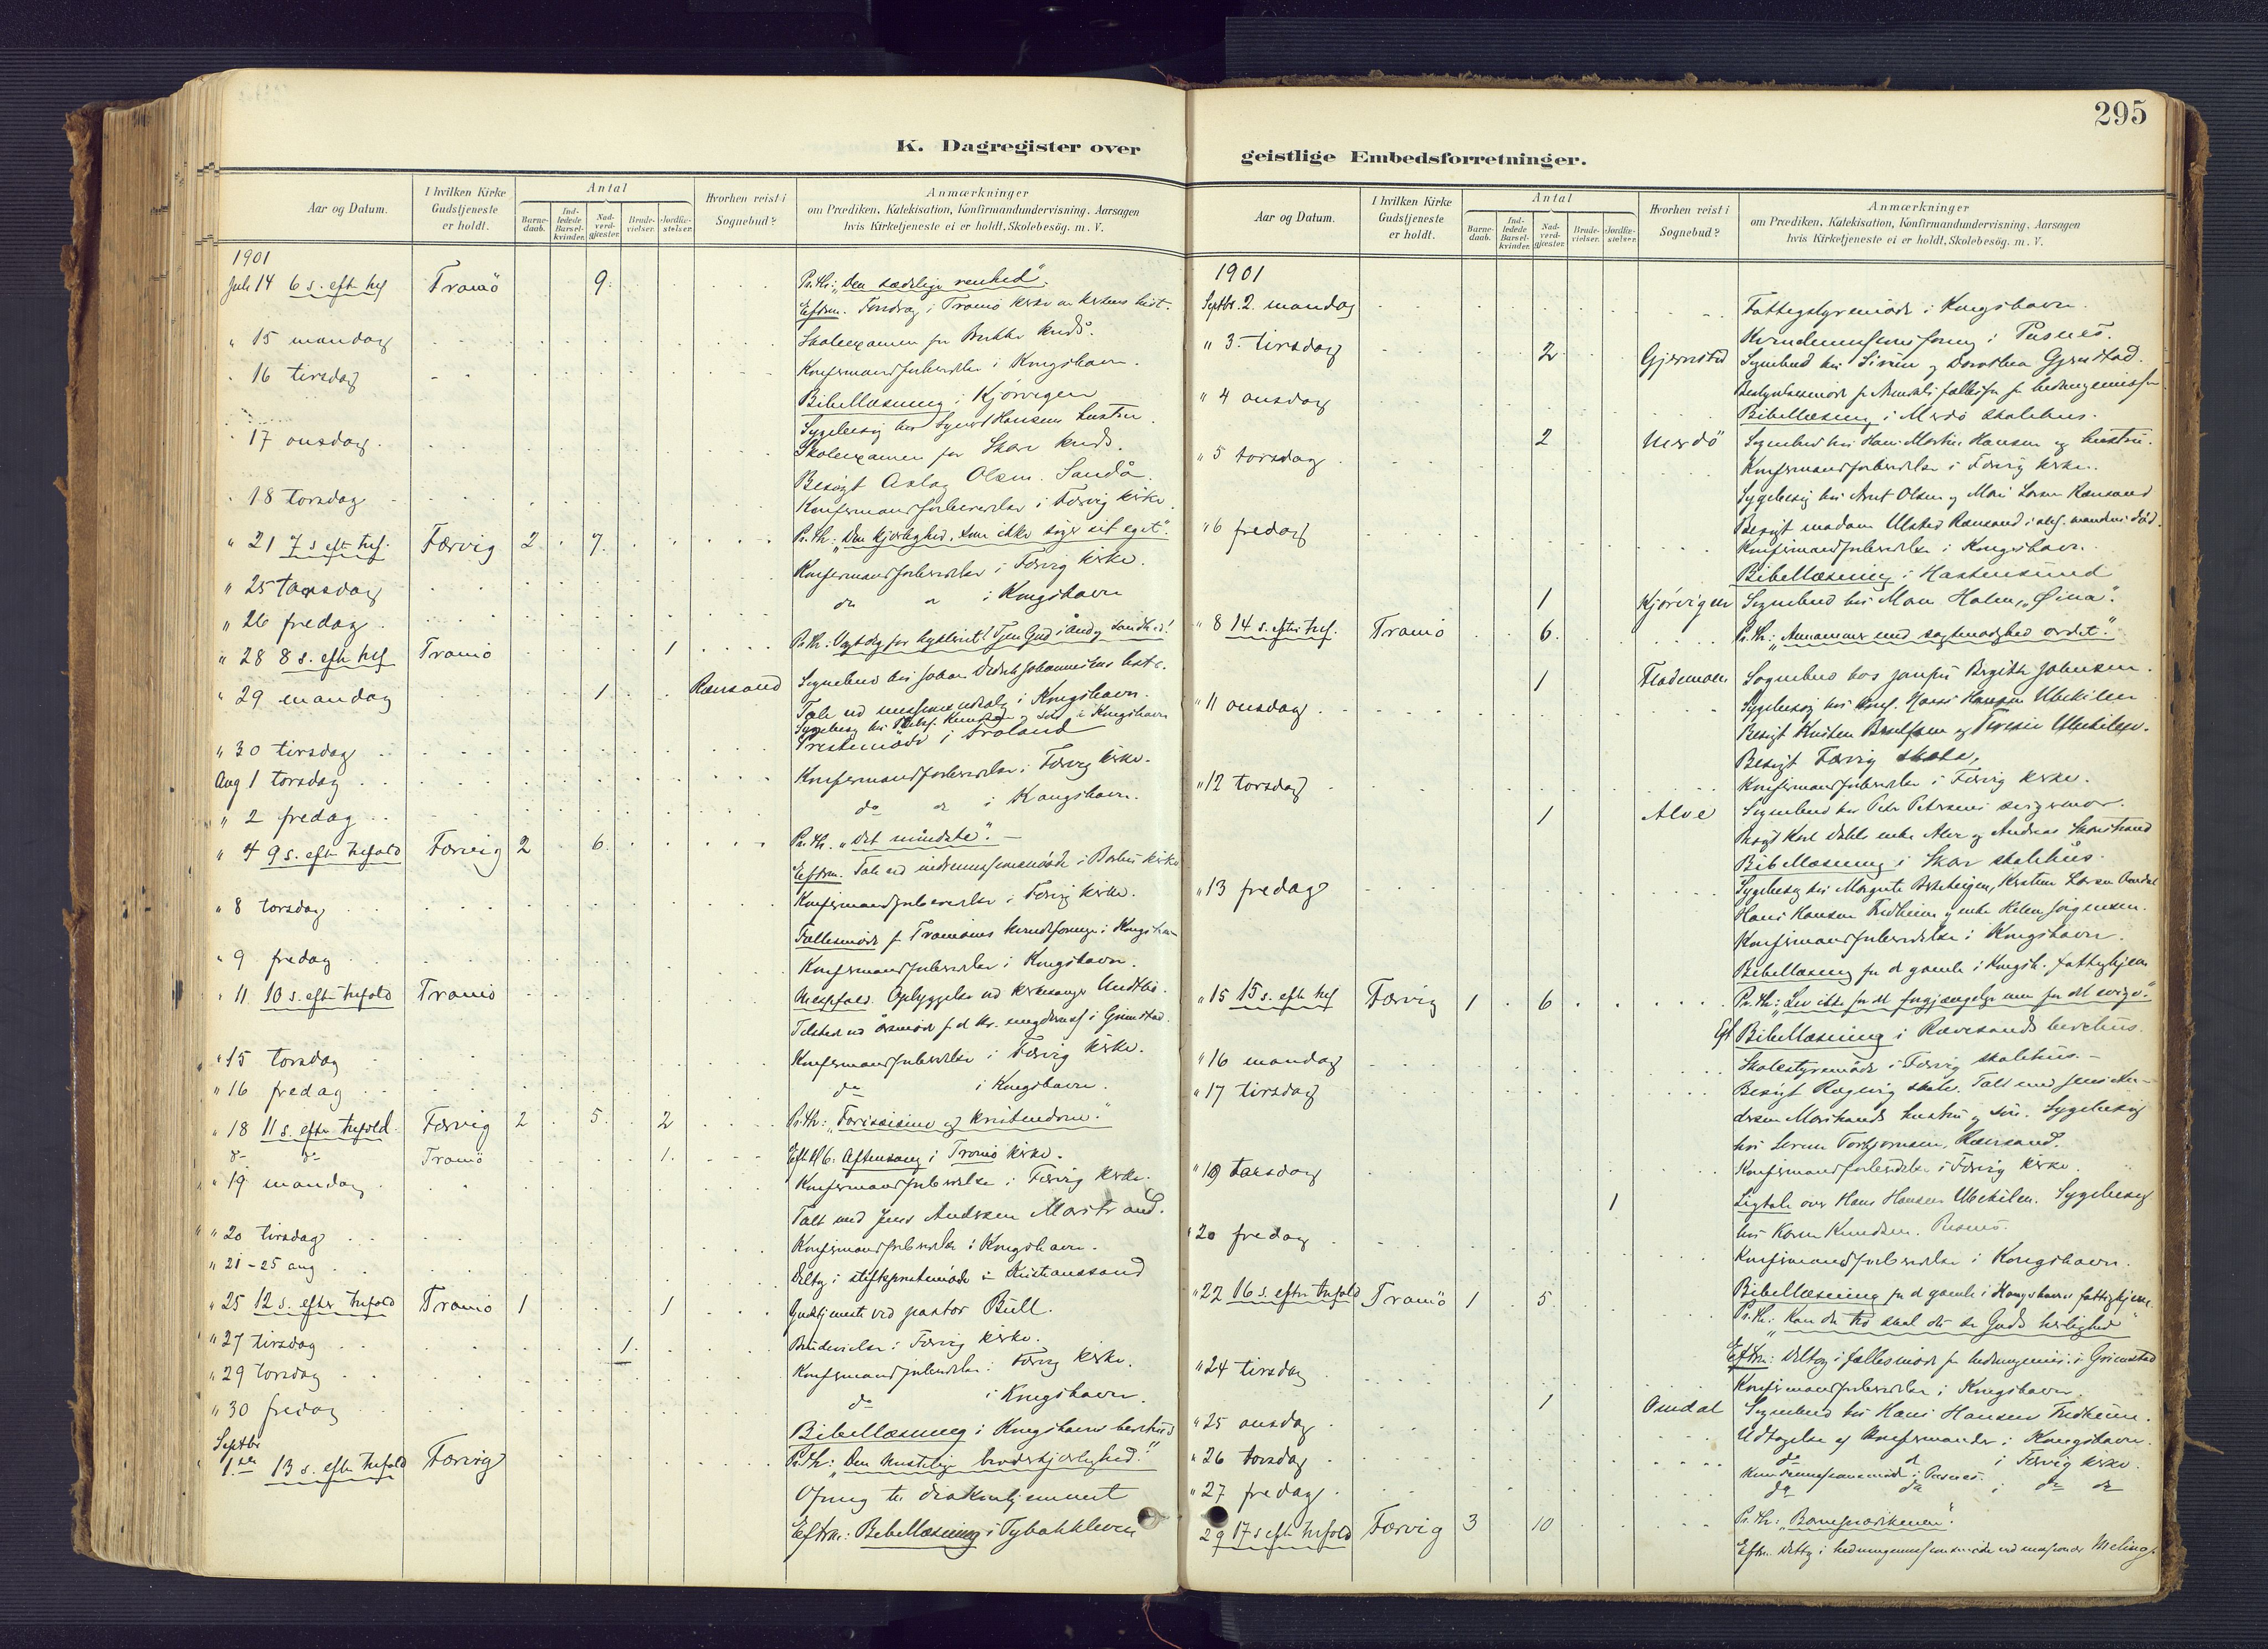 295
K. Dagregister over
geistlige Embedsforretninger.
Aar og Datum.
I hvilken Kirke Gudstjeneste er holdt.
Antal
Barne-daab.
Ind-ledede Barsel-kvinder.
Nad-verd-gjæster.
Brude-vielser.
Jordfæ-stelser.
Hvorhen reist i Sognebud?
Anmærkninger
om Prædiken, Katekisation, Konfirmandundervisning, Aarsagen
hvis Kirketjeneste ei er holdt, Skolebesøg. m. V.
1901
Juli 14 6 s. eft. tref Tromö 9. Pr. th: "Den sædelige renhed".
Eftrm. Foredrag i Tromö kirke om kirkens hist.
" 15 mandag Skoleexamen for Brekke kreds.
" 16 tirsdag Konfirmandforberedelse i Kongshavn.
Bibellæsning i Kjörvigen
Sygebesög hos Hansens hustru.
" 17 onsdag. Skoleexamen for Skare kreds.
Besögt Aslag Olsen. Sandå.
" 18 torsdag Konfirmandforberedelse i Færvig kirke.
" 21 7 s eft. tref. Færvig 2 7. Pr. th: "Den kjærlighed, som ikke söger sit eget".
" 25 torsdag Konfirmandforberedelse i Færvig kirke.
" 26 fredag do do i Kongshavn
" 28 8 s. eft. tref Tromö 1 Pr. th: Vogt dig for hykleriet! Tjen Gud i ånd og sandhed!
" 29 mandag 1 Rævesand Sognebud hos Johan Didrik Johannesens
Tale ved i Kongshavn.
Sygebesög hos i Kongshavn
" 30 tirsdag Prestemöde i Froland
Aug 1 torsdag Konfirmandforberedelse i Færvig kirke.
" 2 fredag do do i Kongshavn.
" 4 9 s. eft. trefold Færvig 2 6. Pr. th. "Det mindste".
Eftrm. Tale ved indremissionsmöde i Barbu kirke
" 8 torsdag Konfirmandforberedelse i Færvig kirke.
Fællesmöde f. Tromöens i Kongshavn
" 9 fredag Konfirmandforberedelse i Kongshavn.
" 11. 10 s. eft. trefold Tromö Messefald. Opbyggelse ved kirkesanger
Tilsted ved årsmöde f. i Grimstad.
" 15 torsdag Konfirmandforberedelse i Færvig kirke.
" 16 fredag do i Kongshavn.
" 18 11 s. efter trefold. Færvig 2 5. 2 Pr. th: "Farisæisme og kristendom."
do do Tromö 1. Eft. kl 6: Aftensang i Tromö kirke.
" 19 mandag Konfirmandforberedelse i Færvig kirke.
Talt med Jens Andersen Marstrand.
" 20 tirsdag Konfirmandforberedelse i Kongshavn.
" 21-25 aug Deltog i stiftsprestemöde i Kristianssand
" 25 12 s. efter trefold Tromö 1 1 Gudstjeneste ved pastor Bull.
" 27 tirsdag 1. Brudevielse i Færvig kirke.
" 29 torsdag Konfirmandforberedelse i Færvig kirke.
" 30 fredag do i Kongshavn.
Bibellæsning i Kongshavns bedehus
Septbr
1. 13 s. efter trefold Færvig Pr. th: "Den kristelige broderkjærlighed."
Ofring til diakonhjemmet
Eftrm: Bibellæsning i Tybakkleven
Aar og Datum.
I hvilken Kirke Gudstjeneste er holdt.
Antal
Barne-daab.
Ind-ledede Barsel-kvinder.
Nad-verd-gjæster.
Brude-vielser.
Jordfæ-stelser.
Hvorhen reist i Sognebud?
Anmærkninger
om Prædiken, Katekisation, Konfirmandundervisning, Aarsagen
hvis Kirketjeneste ei er holdt, Skolebesøg. m. V.
1901
Septbr. 2. mandag Fattigstyremöde i Kongshavn.
" 3. tirsdag Kvindemissionsforening i Pusnes.
2 Gjerrestad Sognebud hos Sirine og Dorothea Gjerrestad.
" 4 onsdag Bestyrelsesmöde f. Arendals for hedningemission
Bibellæsning i Merdö skolehus.
2 Merdö Sognebud hos Hans Martin Hansen og hustru.
" 5 torsdag Konfirmandforberedelse i Færvig kirke.
Sygebesög hos Arnt Olsen og Mari Larsen Rævesand
Besögt madam Ulsted Rævesand i anl. mandens död.
" 6 fredag Konfirmandforberedelse i Kongshavn.
Bibellæsning i Hastensund
1 Kjörvigen Sognebud hos Maren Halen, "Öina".
" 8 14 s. efter tref. Tromö 6. Pr. th: "Annammer med sagtmodighed ordet."
1 Flademoen Sognebud hos jomfru Birgitte Johnsen.
" 11 onsdag Sygebesög hos Hans Hansen Ubekilen
Besögt Kristen og Ubekilen.
Besögt Færvig skole,
" 12 torsdag Konfirmandforberedelse i Færvig kirke.
1 Alve Sognebud hos Peter Petersens svigermor.
Besögt enke Alve og Andreas
Bibellæsning i Skare skolehus.
" 13 fredag Sygebesög hos Margrete Kirsten Larsen Omdal
Hans Hansen Fredheim og enke Helen Jörgensen.
Konfirmandforberedelse i Kongshavn.
Bibellæsning for de gamle i Kongsh. fattighjem
" 15 15 s. eft tref Færvig 1 6 Pr. th: "Lev ikke for det forgjængelige men for det evige."
Ef Bibellæsning i Rævesands bedehus.
" 16 mandag Skolestyremöde i Færvig skolehus.
" 17 tirsdag Besögt Rægevig skole. Talt med Jens An-
dersen Marstrands hustru og sön. Sygebesög
hos Lorens Torbjörnsen, Rævesand.
" 19 torsdag Konfirmandforberedelse i Færvig kirke.
1 Ligtale over Hans Hansen Ubekilen. Sygebesög
hos Karen Knudsen. Pusnes.
" 20 fredag Konfirmandforberedelse i Kongshavn.
Bibellæsning for de gamle i Kongshavns fattighjem.
" 22 16 s. efter trefold Tromö 1 5. Pr. th: "Kan du tro skal du se Guds herlighed"
Eftrm: Deltog i fællesmöde for hedningemis. i Grimstad
" 24 tirsdag Konfirmandforberedelse i Kongshavn.
1 Omdal Sognebud hos Hans Hansen Fredheim.
" 25 onsdag Udtagelse af konfirmander i Kongshavn.
" 26 torsdag do d i Færvig kirke.
Kvindemissionsmöde i Pusnes.
" 27 fredag do do i do do
29 17 s eft. trefold Færvig 3 10 Pr. th: "Barneprædikenen".
Eftrm. Deltog i hedningemissionsmöde ved missionær Meling.